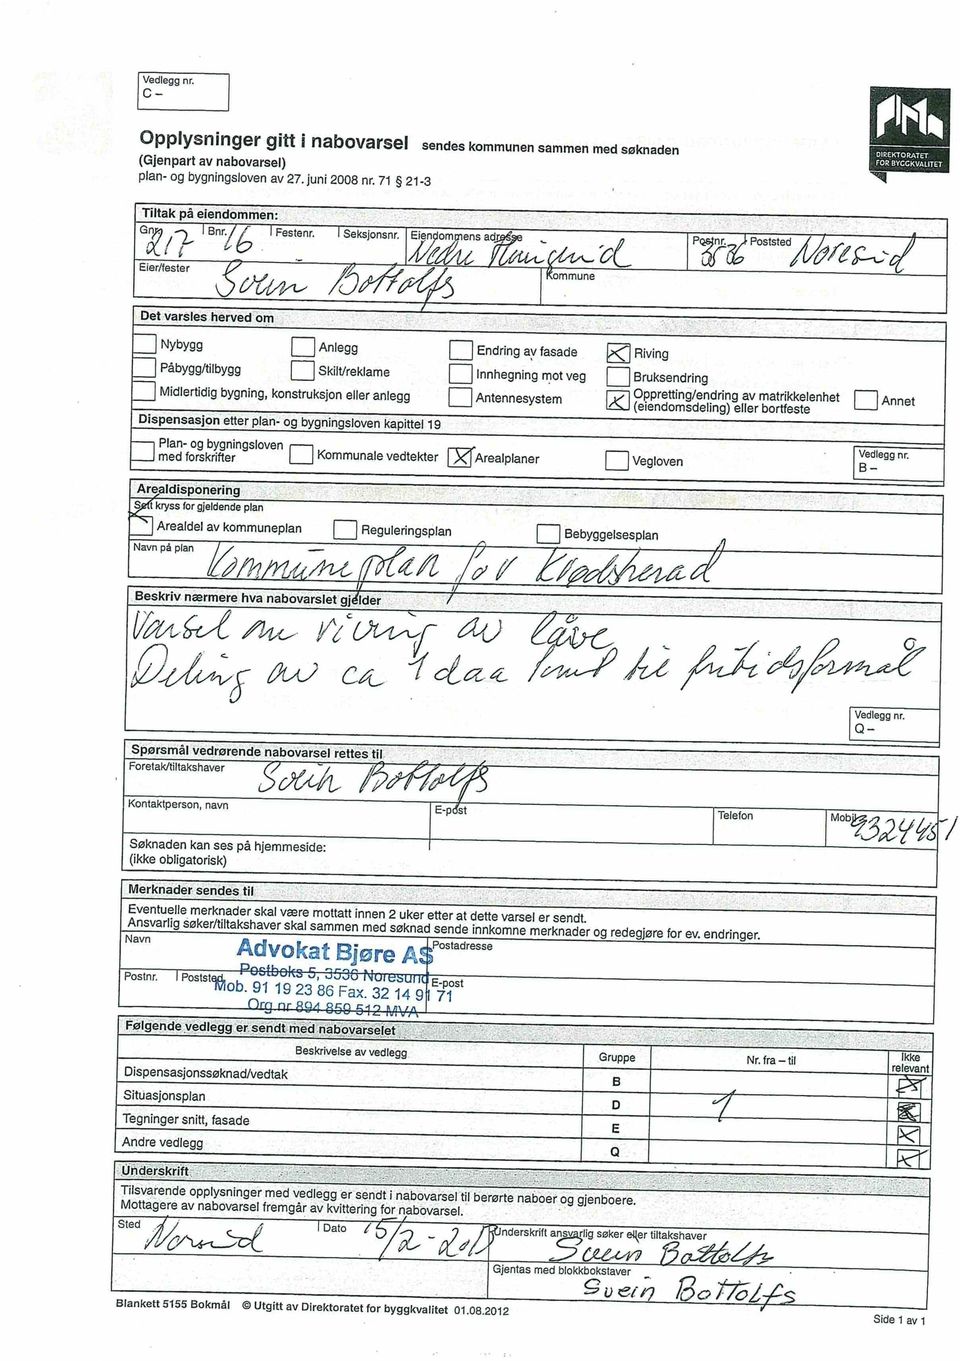 Vedlegg nr.
C –
Opplysninger gitt i nabovarsel sendes kommunen sammen med søknaden
(Gjenpart av nabovarsel)
plan- og bygningsloven av 27. juni 2008 nr. 71 § 21-3
DIREKTORATET
FOR BYGGKVALITET
Tiltak på eiendommen:
Gnr. Bnr. Festenr. Seksjonsnr. Eiendommens adresse Postnr. Poststed
217 16 - Nedre 3536 Noresund
Eier/fester Kommune
Svein Bottolfs
Det varsles herved om
Nybygg Anlegg Endring av fasade Riving
Påbygg/tilbygg Skilt/reklame Innhegning mot veg Bruksendring
Midlertidig bygning, konstruksjon eller anlegg Antennesystem Oppretting/endring av matrikkelenhet (eiendomsdeling) eller bortfeste Annet
Dispensasjon etter plan- og bygningsloven kapittel 19
Plan- og bygningsloven med forskrifter Kommunale vedtekter Arealplaner Vegloven Vedlegg nr.
B –
Arealdisponering
Sett kryss for gjeldende plan
Arealdel av kommuneplan Reguleringsplan Bebyggelsesplan
Navn på plan
Kommuneplan for Krødsherad
Beskriv nærmere hva nabovarslet gjelder
Varsel om riving av låve
Deling av ca 1 daa tomt til fritidsformål
Vedlegg nr.
Q –
Spørsmål vedrørende nabovarsel rettes til
Foretak/tiltakshaver
Svein Bottolfs
Kontaktperson, navn E-post Telefon Mobil
Søknaden kan ses på hjemmeside:
(ikke obligatorisk)
Merknader sendes til
Eventuelle merknader skal være mottatt innen 2 uker etter at dette varsel er sendt.
Ansvarlig søker/tiltakshaver skal sammen med søknad sende innkomne merknader og redegjøre for ev. endringer.
Navn Postadresse
Advokat Bjøre AS
Postboks 5, 3536 Noresund
Postnr. Poststed E-post
Mob. 91 19 23 86 Fax. 32 14 91 71
Org.nr 894 859 512 MVA
Følgende vedlegg er sendt med nabovarselet
Beskrivelse av vedlegg Gruppe Nr. fra – til Ikke relevant
Dispensasjonssøknad/vedtak B
Situasjonsplan D 1
Tegninger snitt, fasade E
Andre vedlegg Q
Underskrift
Tilsvarende opplysninger med vedlegg er sendt i nabovarsel til berørte naboer og gjenboere.
Mottagere av nabovarsel fremgår av kvittering for nabovarsel.
Sted Dato Underskrift ansvarlig søker eller tiltakshaver
Svein Bottolfs
Gjentas med blokkbokstaver
Svein Bottolfs
Blankett 5155 Bokmål © Utgitt av Direktoratet for byggkvalitet 01.08.2012
Side 1 av 1